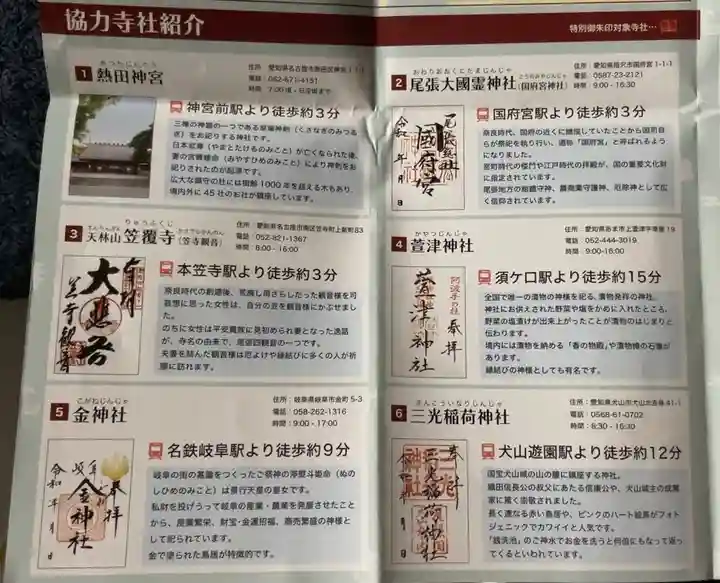 協力寺社紹介
特別御朱印対象寺社…
1
あつたじんぐう
熱田神宮
住所：愛知県名古屋市熱田区神宮1-1-1
電話：052-671-4151
神宮前駅より徒歩約3分
三種の神器の一つである草薙神剣（くさなぎのみつるぎ）をお祀りする神社です。
日本武尊（やまとたけるのみこと）が亡くなられた後、
妻の宮簀媛命（みやすひめのみこと）により神剣をお
祀りされたのが起源です。
広大な鎮守の杜には樹齢1000年を超える木もあり、
境内外に45社のお社が鎮座しています。
2
おわりおおくにたまじんじゃ
尾張大國霊神社
(国府宮神社)
こうのみやじんじゃ
住所：愛知県稲沢市国府宮1-1-1
電話：0587-23-2121
時間：9:00 - 16:30
国府宮駅より徒歩約3分
奈良時代、国府の近くに鎮座していたことから国司自
らが祭祀を執り行い、通称「国府宮」と呼ばれるよ
うになりました。
室町時代の楼門や江戸時代の拝殿が、国の重要文化財
に指定されています。
尾張地方の総鎮守神、農商業守護神、厄除神として広
く信仰されています。
國府宮
令和 年 月 日
3
てんりんざん りゅうふくじ
天林山 笠覆寺
(笠寺観音)
かさでらかんのん
住所：愛知県名古屋市南区笠寺町上新町83
電話：052-821-1367
時間：8:00 - 16:00
本笠寺駅より徒歩約3分
奈良時代の創建後、荒廃し雨ざらしだった観音様を可
哀想に思った女性は、自分の笠を観音様にかぶせまし
た。
のちに女性は平安貴族に見初められ妻となった逸話
が、寺名の由来で、尾張四観音の一つです。
夫妻を結んだ観音様は厄よけや縁結びに多くの人が祈
願に訪れます。
奉拝
笠寺観音
4
かやつじんじゃ
萱津神社
住所：愛知県あま市上萱津字車屋19
電話：052-444-3019
時間：9:00-16:00
須ケ口駅より徒歩約15分
全国で唯一の漬物の神様を祀る、漬物発祥の神社。
神社にお供えされた野菜や塩をかめに入れたところ、
野菜の塩漬けが出来上がったことが漬物のはじまりと
伝わります。
境内には漬物を納める「香の物殿」や漬物樽の石像が
あります。
縁結びの神様としても有名です。
阿波手の杜
奉拝
萱津神社
5
こがねじんじゃ
金神社
住所：岐阜県岐阜市金町5-3
電話：058-262-1316
時間：9:00 - 17:00
名鉄岐阜駅より徒歩約9分
岐阜の街の基盤をつくったご祭神の渟熨斗姫命（ぬの
しひめのみこと）は景行天皇の皇女です。
私財を投げうって岐阜の産業・農業を発展させたこと
から、産業繁栄、財宝・金運招福、商売繁盛の神様と
して祀られています。
金で塗られた鳥居が特徴的です。
奉拝
岐阜
金神社
令和 年 月 日
6
さんこういなりじんじゃ
三光稲荷神社
住所：愛知県犬山市犬山北古券41-1
電話：0568-61-0702
時間：8:30 - 16:30
犬山遊園駅より徒歩約12分
国宝犬山城の山の麓に鎮座する神社。
織田信長公の叔父にあたる信康公や、犬山城主の成瀬
家に篤く崇敬されました。
長く連なる赤い鳥居や、ピンクのハート絵馬がフォト
ジェニックでカワイイと人気です。
「銭洗池」のご神水でお金を洗うと何倍にもなって返っ
てくるといわれています。
奉拝
三光稲荷神社